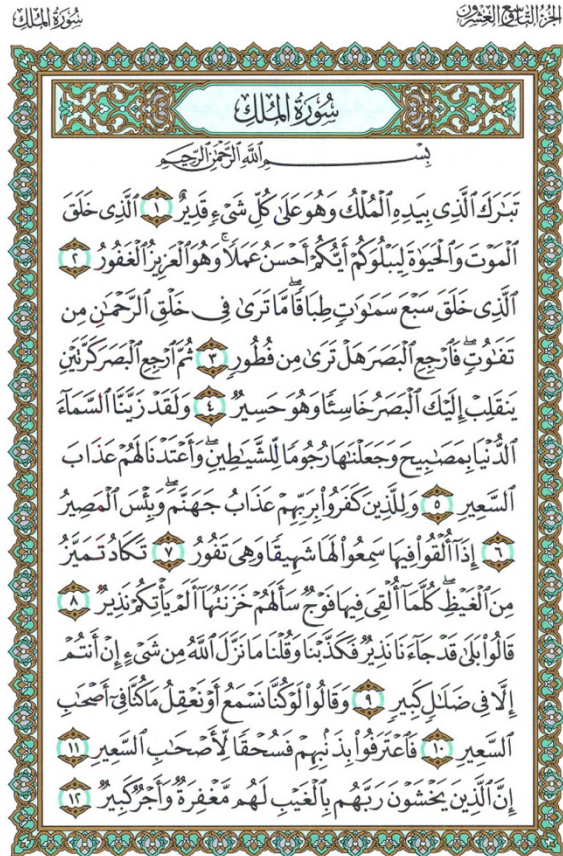 الجزء التاسع والعشرون
سُورَةُ المُلْكِ
سُورَةُ المُلْكِ
بِسْمِ اللَّهِ الرَّحْمَٰنِ الرَّحِيمِ
تَبَٰرَكَ ٱلَّذِى بِيَدِهِ ٱلْمُلْكُ وَهُوَ عَلَىٰ كُلِّ شَىْءٍ قَدِيرٌ ١ ٱلَّذِى خَلَقَ
ٱلْمَوْتَ وَٱلْحَيَوٰةَ لِيَبْلُوَكُمْ أَيُّكُمْ أَحْسَنُ عَمَلًا ۚ وَهُوَ ٱلْعَزِيزُ ٱلْغَفُورُ ٢
ٱلَّذِى خَلَقَ سَبْعَ سَمَٰوَٰتٍ طِبَاقًا ۖ مَّا تَرَىٰ فِى خَلْقِ ٱلرَّحْمَٰنِ مِن
تَفَٰوُتٍ ۖ فَٱرْجِعِ ٱلْبَصَرَ هَلْ تَرَىٰ مِن فُطُورٍ ٣ ثُمَّ ٱرْجِعِ ٱلْبَصَرَ كَرَّتَيْنِ
يَنقَلِبْ إِلَيْكَ ٱلْبَصَرُ خَاسِئًا وَهُوَ حَسِيرٌ ٤ وَلَقَدْ زَيَّنَّا ٱلسَّمَآءَ
ٱلدُّنْيَا بِمَصَٰبِيحَ وَجَعَلْنَٰهَا رُجُومًا لِّلشَّيَٰطِينِ ۖ وَأَعْتَدْنَا لَهُمْ عَذَابَ
ٱلسَّعِيرِ ٥ وَلِلَّذِينَ كَفَرُوا۟ بِرَبِّهِمْ عَذَابُ جَهَنَّمَ ۖ وَبِئْسَ ٱلْمَصِيرُ
٦ إِذَآ أُلْقُوا۟ فِيهَا سَمِعُوا۟ لَهَا شَهِيقًا وَهِىَ تَفُورُ ٧ تَكَادُ تَمَيَّزُ
مِنَ ٱلْغَيْظِ ۖ كُلَّمَآ أُلْقِىَ فِيهَا فَوْجٌ سَأَلَهُمْ خَزَنَتُهَآ أَلَمْ يَأْتِكُمْ نَذِيرٌ ٨
قَالُوا۟ بَلَىٰ قَدْ جَآءَنَا نَذِيرٌ فَكَذَّبْنَا وَقُلْنَا مَا نَزَّلَ ٱللَّهُ مِن شَىْءٍ إِنْ أَنتُمْ
إِلَّا فِى ضَلَٰلٍ كَبِيرٍ ٩ وَقَالُوا۟ لَوْ كُنَّا نَسْمَعُ أَوْ نَعْقِلُ مَا كُنَّا فِىٓ أَصْحَٰبِ
ٱلسَّعِيرِ ١٠ فَٱعْتَرَفُوا۟ بِذَنۢبِهِمْ فَسُحْقًا لِّأَصْحَٰبِ ٱلسَّعِيرِ ١١
إِنَّ ٱلَّذِينَ يَخْشَوْنَ رَبَّهُم بِٱلْغَيْبِ لَهُم مَّغْفِرَةٌ وَأَجْرٌ كَبِيرٌ ١٢